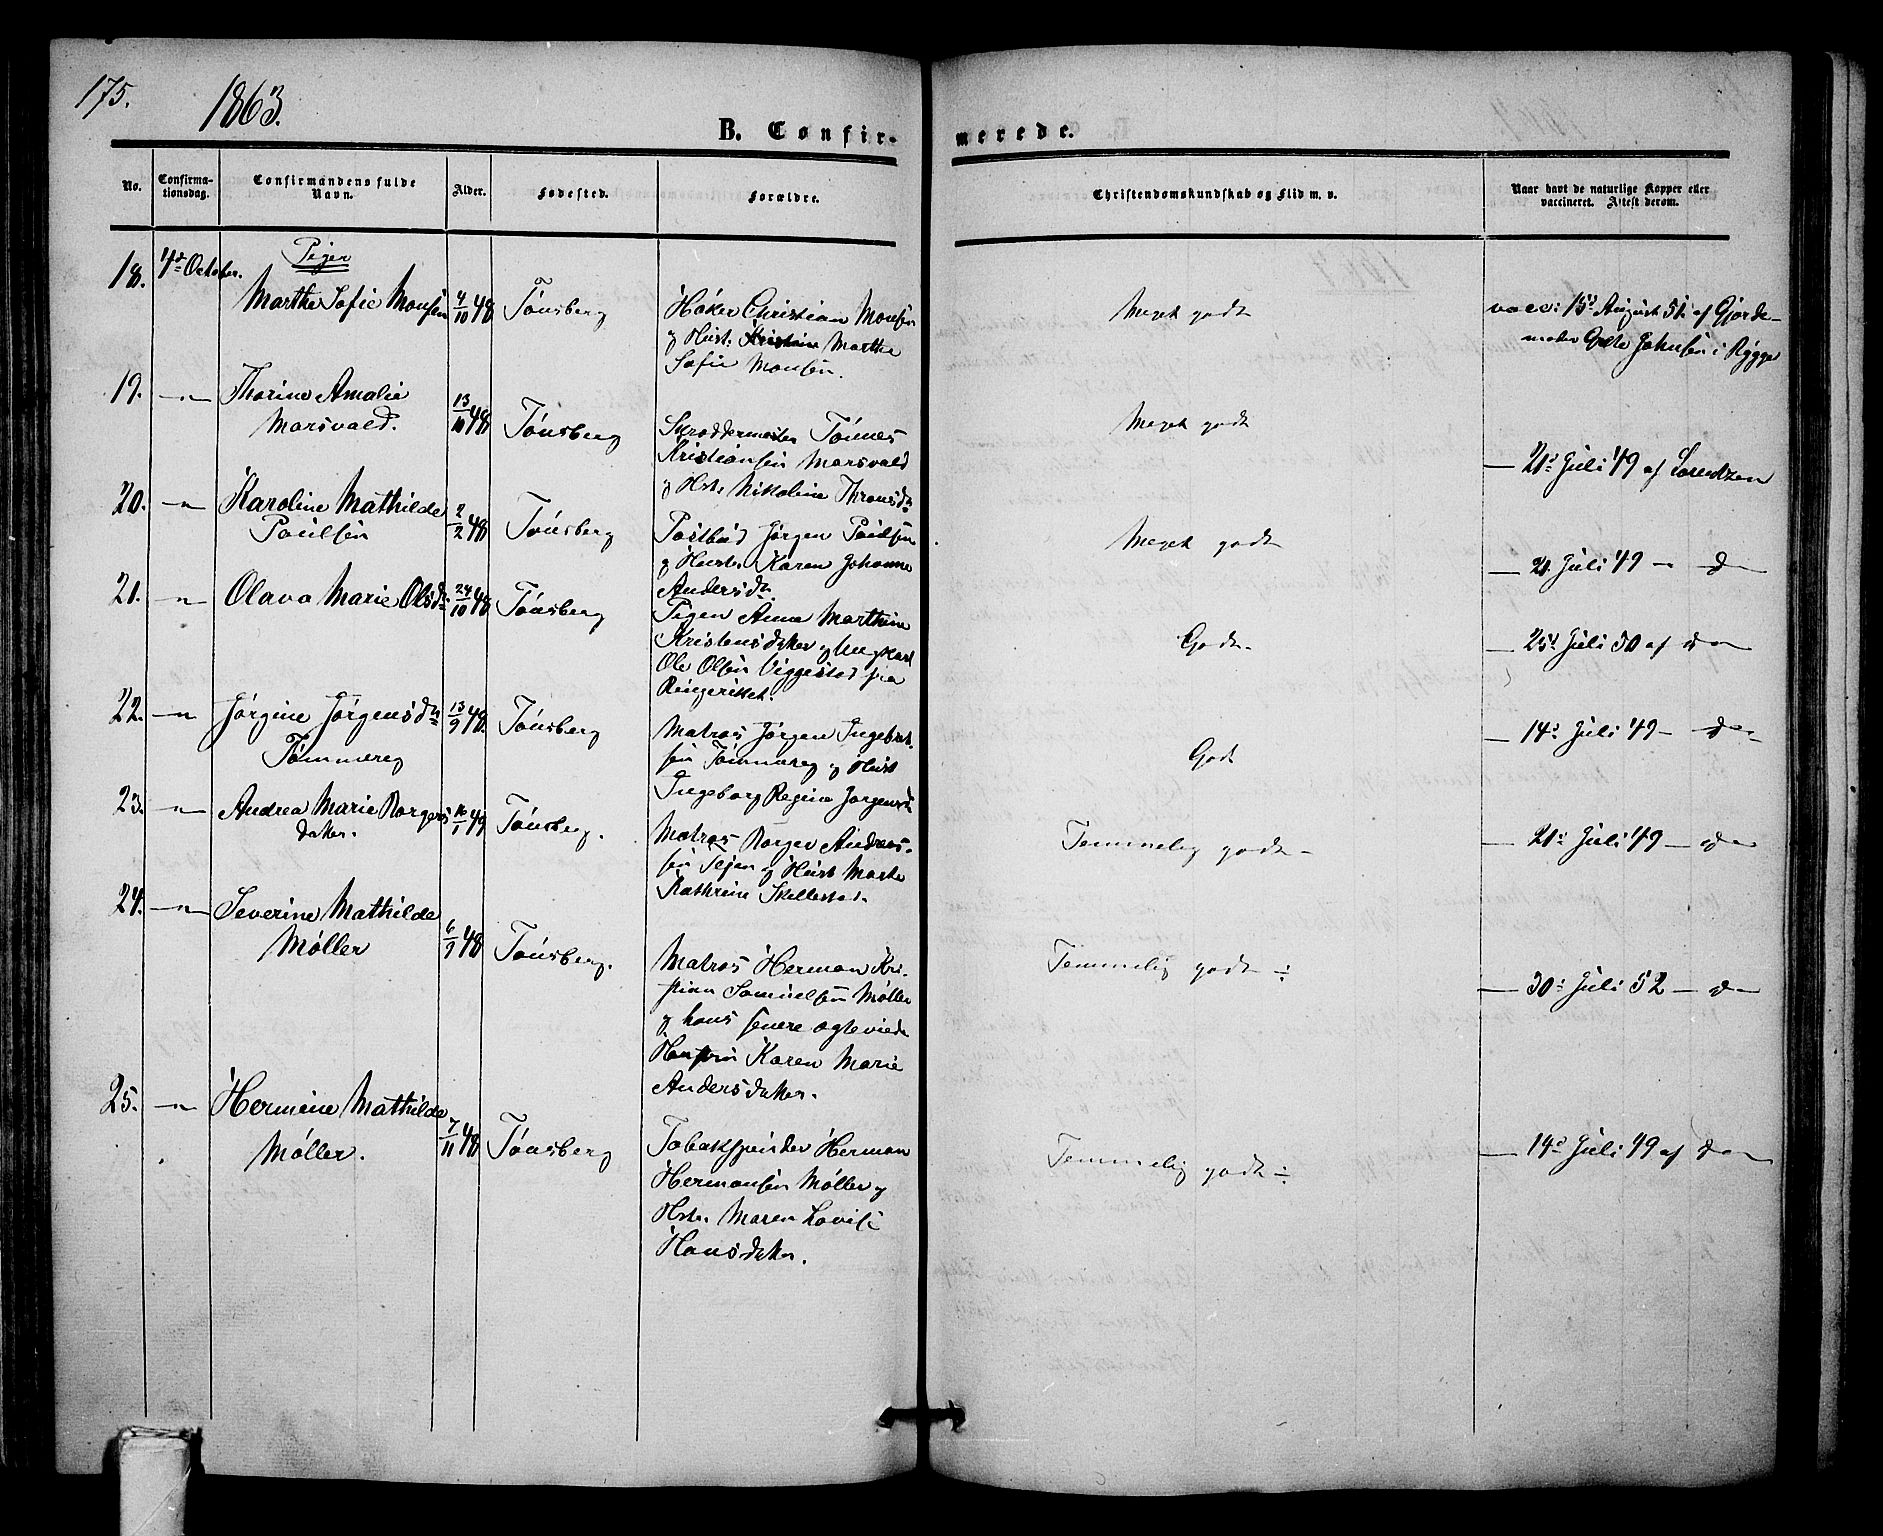 175.
1863.
B. Confirmerede.
No.
Confirmationsdag.
Confirmandens fulde Navn.
Alder.
Fødested.
Forældre.
Christendomskundskab og Flid m. v.
Naar havt de naturlige Kopper eller vaccineret. Attest derom.
Piger
18. 4de October. Marthe Sofie Monsen 4/10 48 Tønsberg
Høker Christian Monsen
og Hust. Marthe
Sofie Monsen.
Meget godt
vacc: 15d August 51. af Gjorde-
moder Johnsen i Rygge
19. —"— Thorine Amalie
Marsvald. 13/10 48 Tønsberg
Skreddermester Tønnes
Kristiansen Marsvald
og Hst. Nikoline Thronsdr
Meget godt
— 21d Juli 49 af Lorentzen
20. —"— Karoline Mathilde
Poulsen 2/2 48 Tønsberg
Postbud Jørgen Poulsen
og Hustr. Karen Johanne
Andersdr.
Meget godt
— 21. Juli 49 — do
21. —"— Olava Marie Olsdr 24/10 48 Tønsberg
Pigen Anne Marthine
Kristensdatter og Ungkarl
Ole Olsen Viggestad fra
Ringeriket.
Godt.
— 25d Juli 50 af do
22. —"— Jørgine Jørgensdr
Tømmereg 13/9 48. Tønsberg
Matros Jørgen Ingebret-
sen Tømmereg og Hust
Ingeborg Regine Jørgensdr
Godt
— 14d Juli 49 — do
23. —"— Andrea Marie Borgers
datter. 16/1 49 Tønsberg.
Matros Borger Andreas-
sen Tejen og Hust Marte
Kathrine Skellestad.
Temmelig godt —
— 21d Juli 49 — do
24. —"— Severine Mathilde
Møller 6/9 48 Tønsberg.
Matros Herman Kri-
stian Samuelsen Møller
og hans senere ægteviede
Hustru Karen Marie
Andersdatter.
Temmelig godt ÷
— 30d Juli 52 — do
25. —"— Hermine Mathilde
Møller. 7/11 48 Tønsberg
Tobakspinder Herman
Hermansen Møller og
Hstr. Maren Lovise
Hansdatter.
Temmelig godt ÷
— 14d Juli 49 af do